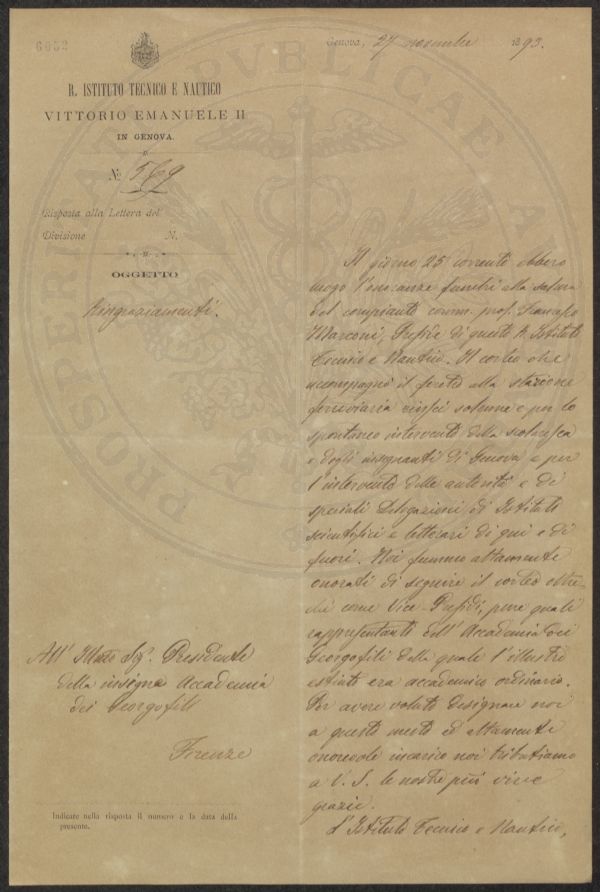 6652
Genova, 27 novembre 1893.
R. ISTITUTO TECNICO E NAUTICO
VITTORIO EMANUELE II
IN GENOVA
N. 569
Risposta alla Lettera del
Divisione N.
OGGETTO
Ringraziamenti.
Il giorno 25 corrente ebbero
luogo l'onoranze funebri alla salma
del compianto comm. prof. Francesco
Marconi, Preside di questo R. Istituto
Tecnico e Nautico. Il corteo che
accompagnò il feretro alla stazione
ferroviaria riuscì solenne e per lo
spontaneo intervento della scolaresca
e degli insegnanti di Genova e per
l'intervento delle autorità e di
speciali Delegazioni di Istituti
scientifici e letterari di qui e di
fuori. Noi fummo altamente
onorati di seguire il corteo oltre
che come Vice-Presidi, pure quali
rappresentanti dell'Accademia dei
Georgofili della quale l'illustre
estinto era accademico ordinario.
Per avere voluto designare noi
a questo mesto ed altamente
onorevole incarico noi tributiamo
a V. S. le nostre più vive
grazie.
L'Istituto Tecnico e Nautico,
All' Illmo Sigr. Presidente
della insigne Accademia
dei Georgofili
Firenze
Indicare nella risposta il numero e la data della
presente.
PROSPERITATI PUBLICAE A